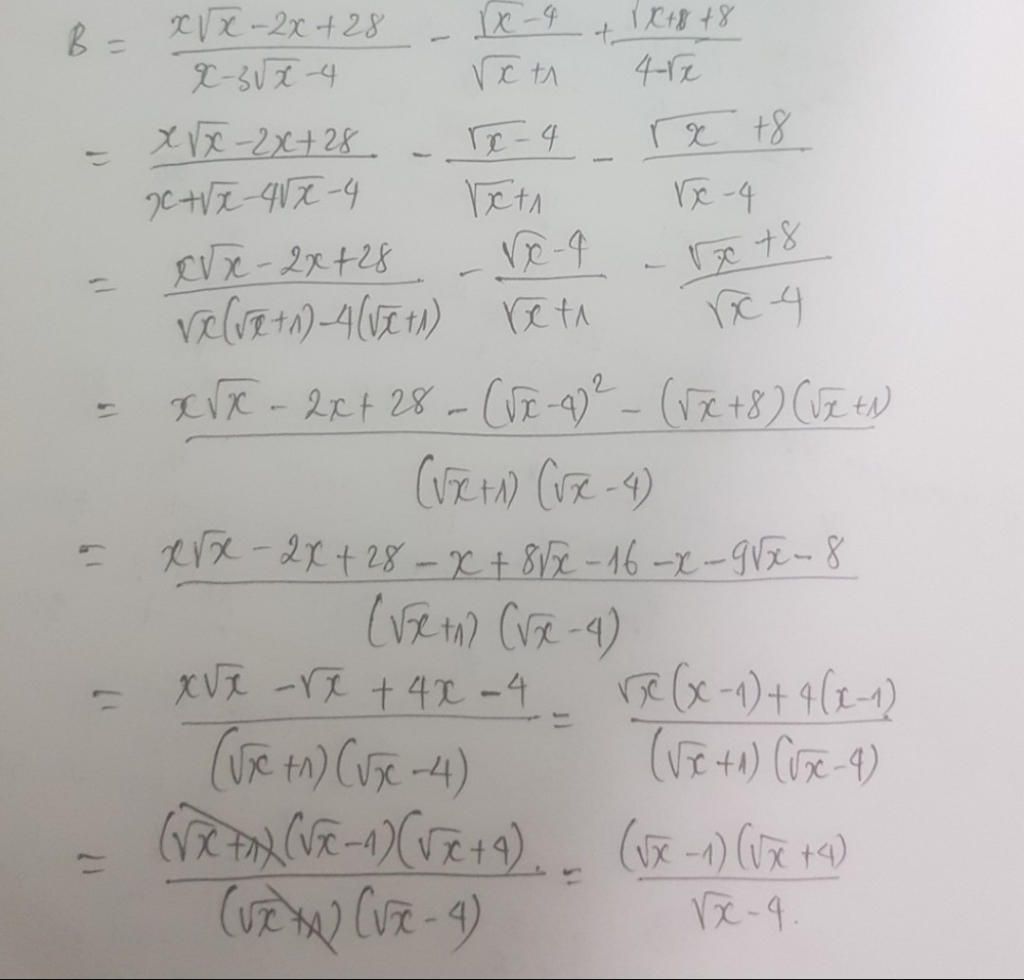 B = (x√x - 2x + 28)/(x - 3√x - 4) - (√x - 4)/(√x + 1) + (√x+8 +8)/(4 - √x)
= (x√x - 2x + 28)/(x + √x - 4√x - 4) - (√x - 4)/(√x + 1) - (√x + 8)/(√x - 4)
= (x√x - 2x + 28)/(√x(√x+1) - 4(√x+1)) - (√x - 4)/(√x + 1) - (√x + 8)/(√x - 4)
= (x√x - 2x + 28 - (√x-4)² - (√x+8)(√x+1))/((√x+1)(√x-4))
= (x√x - 2x + 28 - x + 8√x - 16 - x - 9√x - 8)/((√x+1)(√x-4))
= (x√x - √x + 4x - 4)/((√x+1)(√x-4)) = (√x(x-1) + 4(x-1))/((√x+1)(√x-4))
= ((√x+1)(√x-1)(√x+4))/((√x+1)(√x-4)) = ((√x-1)(√x+4))/(√x-4).